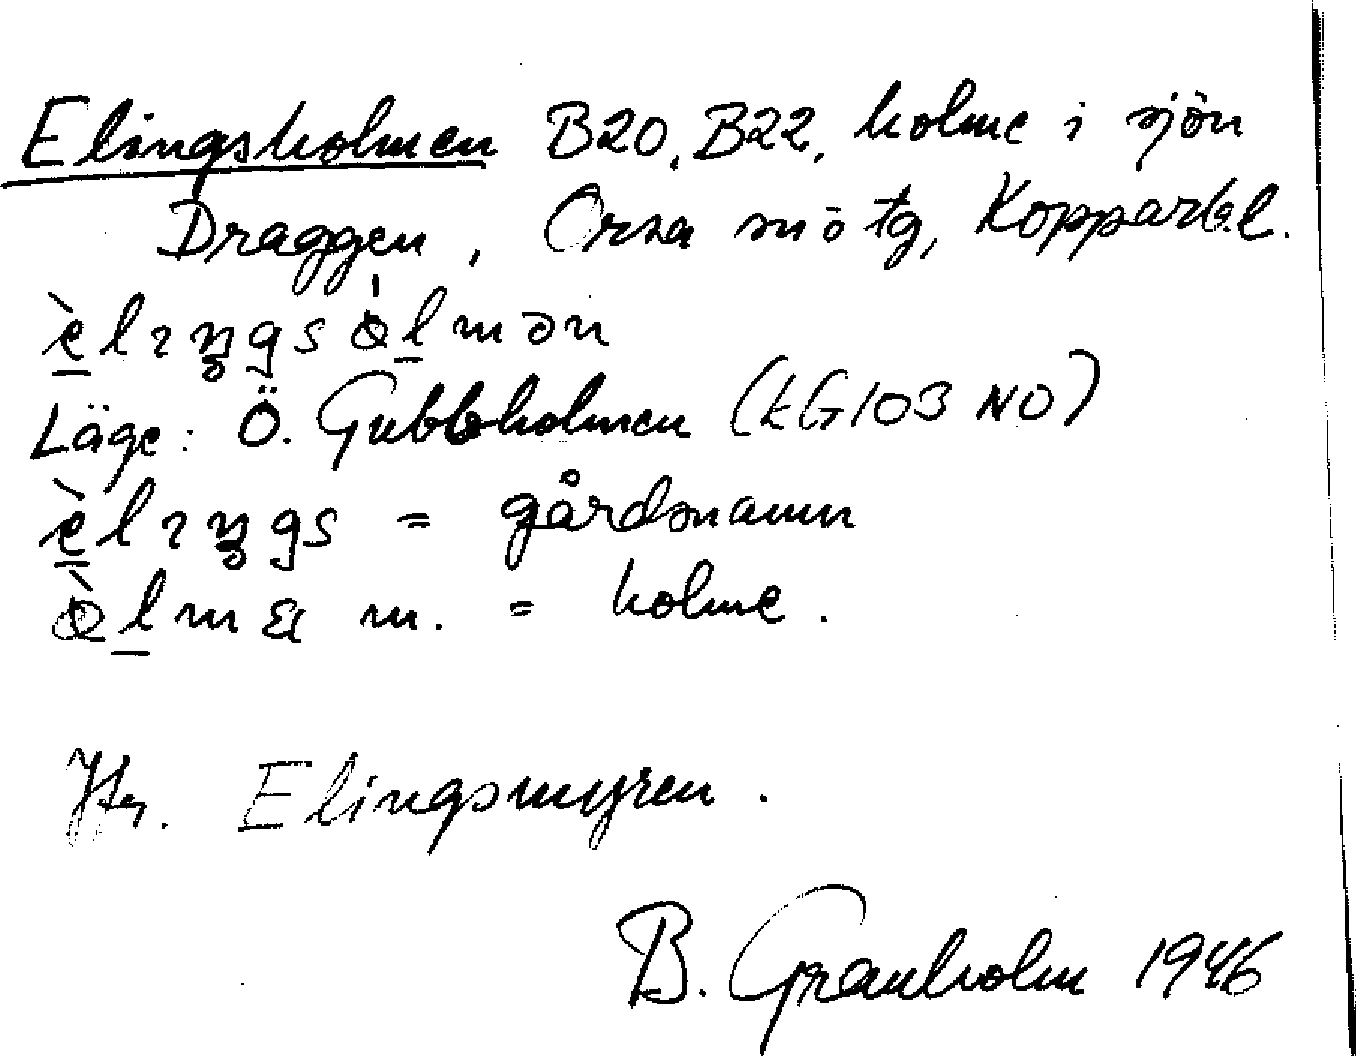 Elingsholmen B20, B22, holme i sjön
Draggen, Orsa snö tg, Kopparb.l.
Läge: Ö. Gubbholmen (EG103 NO)
= gårdsnamn
m. = holme.
Jfr. Elingsmyren.
B. Granholm 1946